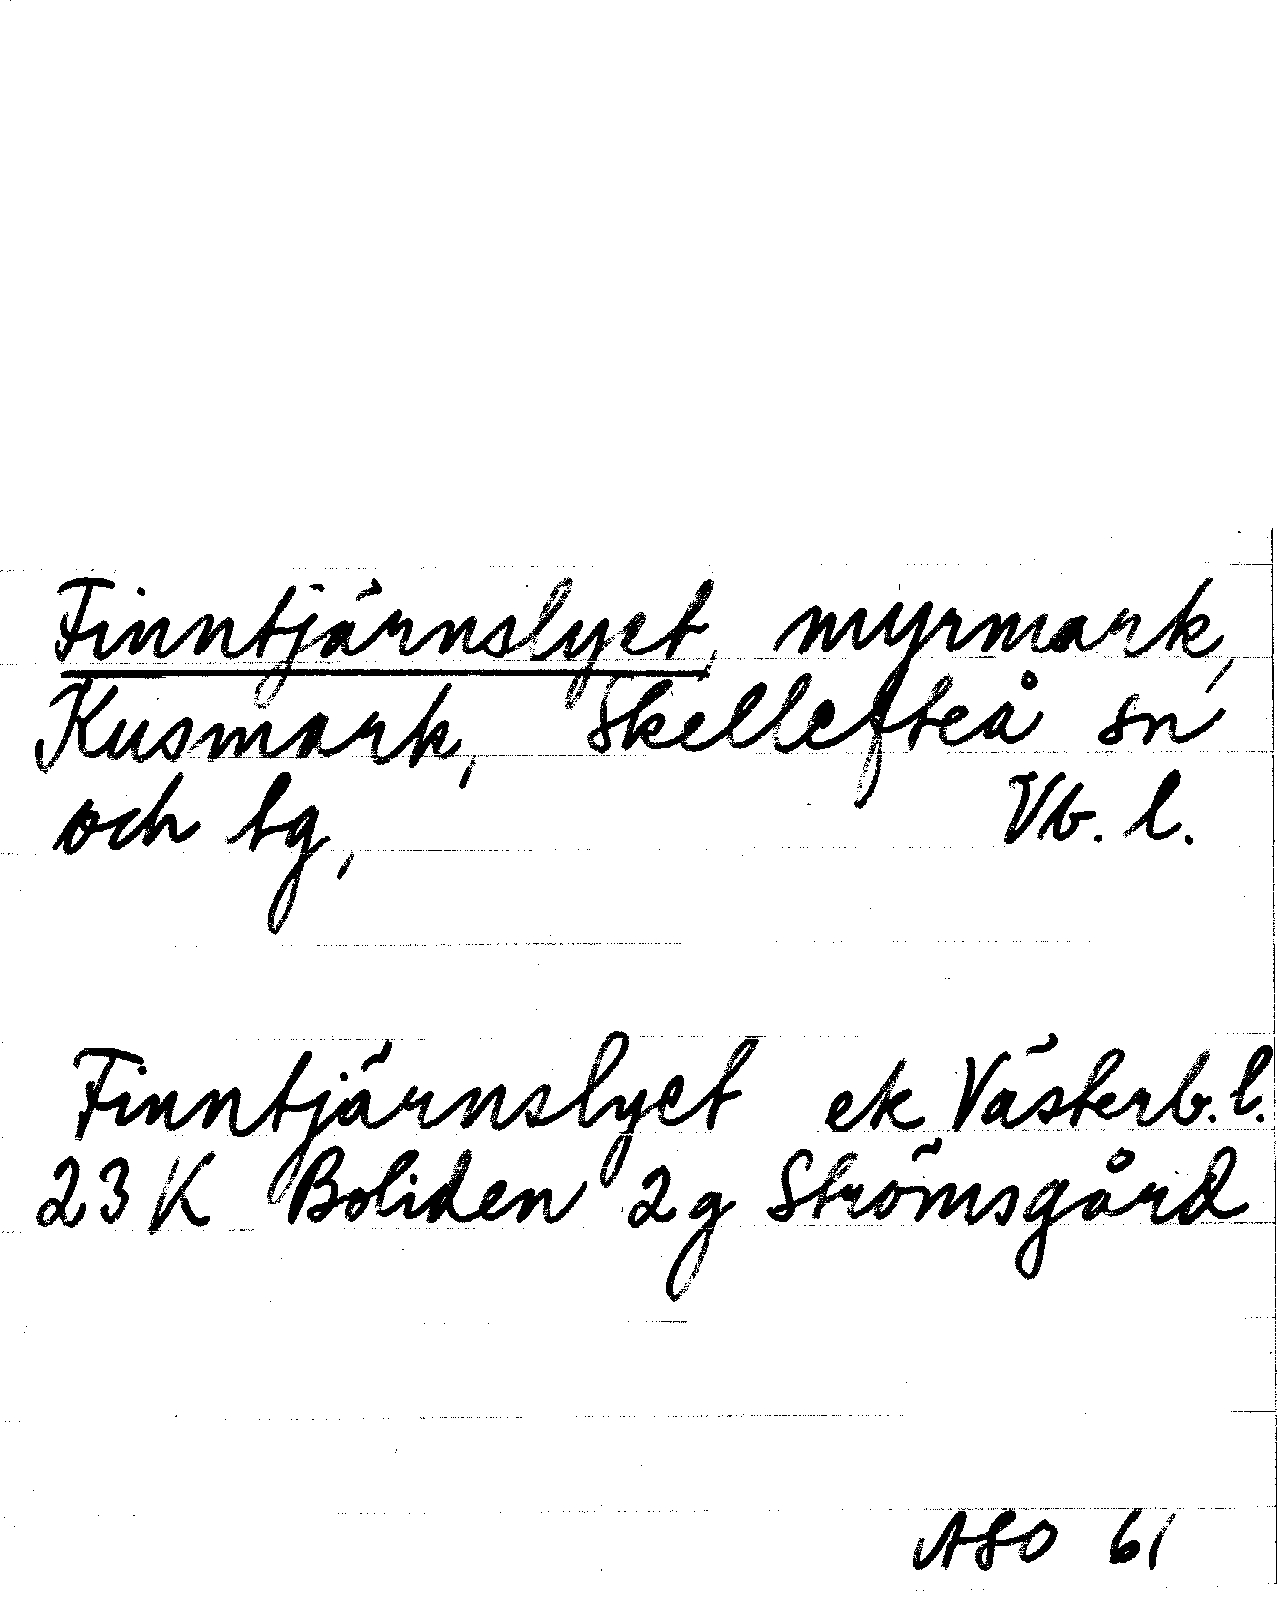 Finntjärnslyet, myrmark,
Kusmark, Skellefteå sn
och tg, Vb. l.
Finntjärnslyet ek Västerb. l.
23 K Boliden 2g Strömsgård
ASO 61